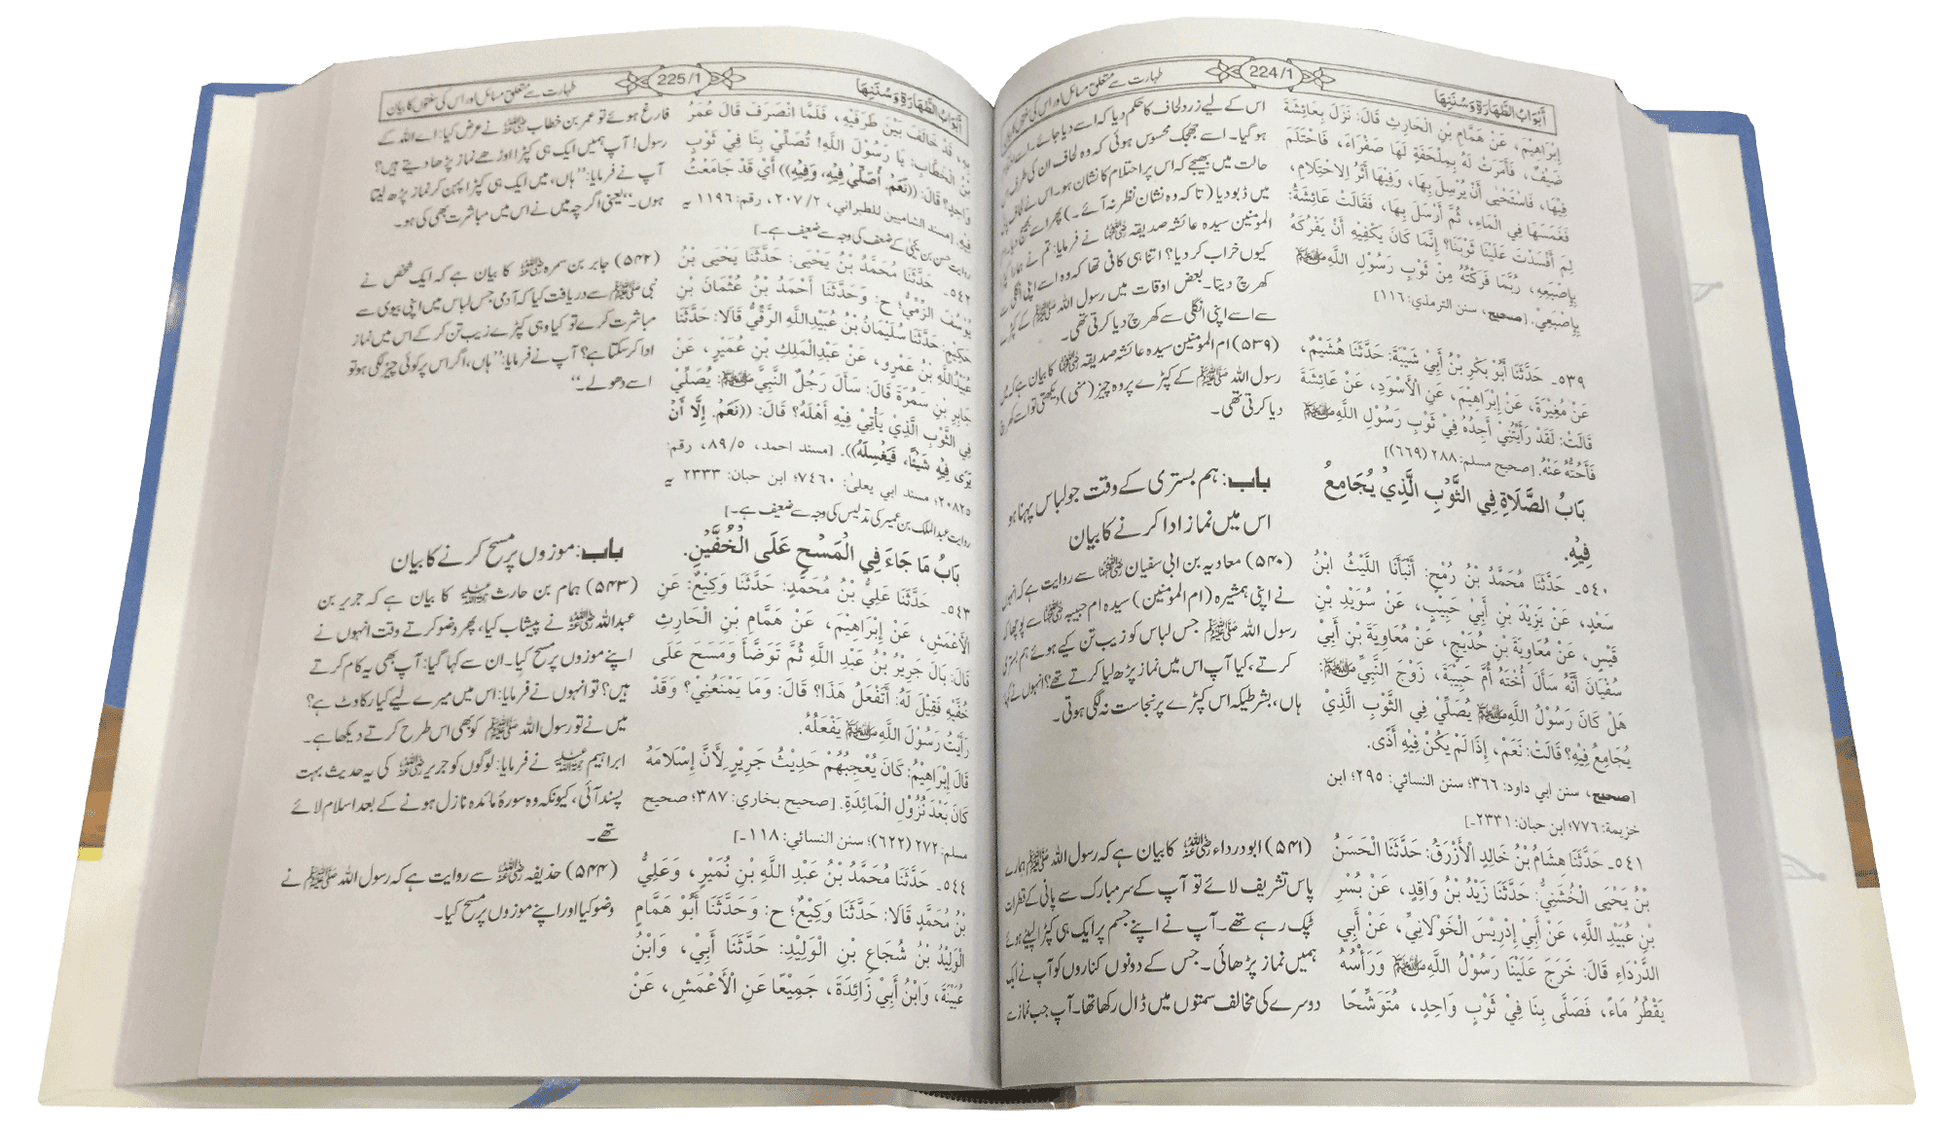 أَبْوَابُ الطَّهَارَةِ وَسُنَنِهَا
224/1
طہارت سے متعلق مسائل اور اس کی سنتوں کا بیان
إِبْرَاهِيْمَ، عَنْ هَمَّامِ بْنِ الْحَارِثِ قَالَ: نَزَلَ بِعَائِشَةَ
ضَيْفٌ، فَأَمَرَتْ لَهُ بِمِلْحَفَةٍ لَهَا صَفْرَاءَ، فَاحْتَلَمَ
فِيْهَا، فَاسْتَحْيٰى أَنْ يُرْسِلَ بِهَا، وَفِيْهَا أَثَرُ الِاحْتِلَامِ،
فَغَمَسَهَا فِي الْمَاءِ، ثُمَّ أَرْسَلَ بِهَا، فَقَالَتْ عَائِشَةُ:
لِمَ أَفْسَدْتَ عَلَيْنَا ثَوْبَنَا؟ إِنَّمَا كَانَ يَكْفِيْهِ أَنْ يَفْرُكَهُ
بِإِصْبَعِهِ، رُبَّمَا فَرَكْتُهُ مِنْ ثَوْبِ رَسُوْلِ اللَّهِ ﷺ
بِإِصْبَعِيْ. [صحیح، سنن الترمذي: ١١٦]
٥٣٩۔ حَدَّثَنَا أَبُوْ بَكْرِ بْنُ أَبِيْ شَيْبَةَ: حَدَّثَنَا هُشَيْمٌ،
عَنْ مُغِيْرَةَ، عَنْ إِبْرَاهِيْمَ، عَنِ الْأَسْوَدِ، عَنْ عَائِشَةَ
قَالَتْ: لَقَدْ رَأَيْتُنِيْ أَجِدُهُ فِيْ ثَوْبِ رَسُوْلِ اللَّهِ ﷺ
فَأَحُتُّهُ عَنْهُ. [صحيح مسلم: ٢٨٨ (٦٦٩)]
بَابُ الصَّلَاةِ فِي الثَّوْبِ الَّذِيْ يُجَامِعُ
فِيْهِ.
٥٤٠۔ حَدَّثَنَا مُحَمَّدُ بْنُ رُمْحٍ: أَنْبَأَنَا اللَّيْثُ ابْنُ
سَعْدٍ، عَنْ يَزِيْدَ بْنِ أَبِيْ حَبِيْبٍ، عَنْ سُوَيْدِ بْنِ
قَيْسٍ، عَنْ مُعَاوِيَةَ بْنِ حُدَيْجٍ، عَنْ مُعَاوِيَةَ بْنِ أَبِيْ
سُفْيَانَ أَنَّهُ سَأَلَ أُخْتَهُ أُمَّ حَبِيْبَةَ، زَوْجَ النَّبِيِّ ﷺ:
هَلْ كَانَ رَسُوْلُ اللَّهِ ﷺ يُصَلِّيْ فِي الثَّوْبِ الَّذِيْ
يُجَامِعُ فِيْهِ؟ قَالَتْ: نَعَمْ، إِذَا لَمْ يَكُنْ فِيْهِ أَذًى.
[صحیح، سنن ابي داود: ٣٦٦؛ سنن النسائي: ٢٩٥؛ ابن
خزيمة: ٧٧٦؛ ابن حبان: ٢٣٣١۔]
٥٤١۔ حَدَّثَنَا هِشَامُ بْنُ خَالِدِ الْأَزْرَقُ: حَدَّثَنَا الْحَسَنُ
بْنُ يَحْيَى الْخُشَنِيُّ: حَدَّثَنَا زَيْدُ بْنُ وَاقِدٍ، عَنْ بُسْرِ
بْنِ عُبَيْدِ اللَّهِ، عَنْ أَبِيْ إِدْرِيْسَ الْخَوْلَانِيِّ، عَنْ أَبِي
الدَّرْدَاءِ قَالَ: خَرَجَ عَلَيْنَا رَسُوْلُ اللَّهِ ﷺ وَرَأْسُهُ
يَقْطُرُ مَاءً، فَصَلَّى بِنَا فِيْ ثَوْبٍ وَاحِدٍ، مُتَوَشِّحًا
اس کے لیے زرد لحاف کا حکم دیا کہ اسے دیا جائے۔ اسے
ہوگیا۔ اسے جھجک محسوس ہوئی کہ وہ لحاف ان کی طرف اس
حالت میں بھیجے کہ اس پر احتلام کا نشان ہو۔ اس نے
میں ڈبو دیا (تا کہ وہ نشان نظر نہ آئے۔) پھر اسے بھیج
المومنین سیدہ عائشہ صدیقہ ؓ نے فرمایا: تم نے
کیوں خراب کر دیا؟ اتنا ہی کافی تھا کہ وہ اسے اپنی انگلی سے
کھرچ دیتا۔ بعض اوقات میں رسول اللہ ﷺ کے کپڑے
سے اسے اپنی انگلی سے کھرچ دیا کرتی تھی۔
(۵۳۹) ام المومنین سیدہ عائشہ صدیقہ ؓ کا بیان ہے کہ میں
رسول اللہ ﷺ کے کپڑے پر وہ چیز (منی) دیکھتی تو اسے کھرچ
دیا کرتی تھی۔
باب: ہم بستری کے وقت جو لباس پہنا ہو
اس میں نماز ادا کرنے کا بیان
(۵۴۰) معاویہ بن ابی سفیان ؓ سے روایت ہے کہ انہوں
نے اپنی ہمشیرہ (ام المومنین) سیدہ ام حبیبہ ؓ سے پوچھا کہ
رسول اللہ ﷺ جس لباس کو زیب تن کیے ہوئے ہم بستری
کرتے، کیا آپ اس میں نماز پڑھ لیا کرتے تھے؟ انہوں نے کہا:
ہاں، بشرطیکہ اس کپڑے پر نجاست نہ لگی ہوتی۔
(۵۴۱) ابو درداء ؓ کا بیان ہے کہ رسول اللہ ﷺ ہمارے
پاس تشریف لائے تو آپ کے سر مبارک سے پانی کے قطرات
ٹپک رہے تھے۔ آپ نے اپنے جسم پر ایک ہی کپڑا لپیٹے ہوئے
ہمیں نماز پڑھائی۔ جس کے دونوں کناروں کو آپ نے ایک
دوسرے کی مخالف سمتوں میں ڈال رکھا تھا۔ آپ جب نماز سے
أَبْوَابُ الطَّهَارَةِ وَسُنَنِهَا
225/1
طہارت سے متعلق مسائل اور اس کی سنتوں کا بیان
بِهِ، قَدْ خَالَفَ بَيْنَ طَرَفَيْهِ، فَلَمَّا انْصَرَفَ قَالَ عُمَرُ
بْنُ الْخَطَّابِ: يَا رَسُوْلَ اللَّهِ! تُصَلِّيْ بِنَا فِيْ ثَوْبٍ
وَاحِدٍ؟ قَالَ: ((نَعَمْ. أُصَلِّيْ فِيْهِ، وَفِيْهِ)) أَيْ قَدْ جَامَعْتُ
فِيْهِ. [مسند الشاميين للطبراني، ٢٠٧/٢، رقم: ١١٩٦ یہ
روایت حسن بن یحییٰ کے ضعف کی وجہ سے ضعیف ہے۔]
٥٤٢۔ حَدَّثَنَا مُحَمَّدُ بْنُ يَحْيَى: حَدَّثَنَا يَحْيَى بْنُ
يُوْسُفَ الزَّمِّيُّ؛ ح: وَحَدَّثَنَا أَحْمَدُ بْنُ عُثْمَانَ بْنِ
حَكِيْمٍ: حَدَّثَنَا سُلَيْمَانُ بْنُ عُبَيْدِاللَّهِ الرَّقِّيُّ قَالَا: حَدَّثَنَا
عُبَيْدُاللَّهِ بْنُ عَمْرٍو، عَنْ عَبْدِالْمَلِكِ بْنِ عُمَيْرٍ، عَنْ
جَابِرِ بْنِ سَمُرَةَ قَالَ: سَأَلَ رَجُلٌ النَّبِيَّ ﷺ: يُصَلِّيْ
فِي الثَّوْبِ الَّذِيْ يَأْتِيْ فِيْهِ أَهْلَهُ؟ قَالَ: ((نَعَمْ. إِلَّا أَنْ
يَرٰى فِيْهِ شَيْئًا، فَيَغْسِلَهُ)). [مسند احمد، ٨٩/٥، رقم:
٢٠٨٢٥؛ مسند ابي يعلىٰ: ٧٤٦٠؛ ابن حبان: ٢٣٣٣ یہ
روایت عبدالملک بن عمیر کی تدلیس کی وجہ سے ضعیف ہے۔]
بَابُ مَا جَاءَ فِي الْمَسْحِ عَلَى الْخُفَّيْنِ.
٥٤٣۔ حَدَّثَنَا عَلِيُّ بْنُ مُحَمَّدٍ: حَدَّثَنَا وَكِيْعٌ: عَنِ
الْأَعْمَشِ، عَنْ إِبْرَاهِيْمَ، عَنْ هَمَّامِ بْنِ الْحَارِثِ
قَالَ: بَالَ جَرِيْرُ بْنُ عَبْدِ اللَّهِ ثُمَّ تَوَضَّأَ وَمَسَحَ عَلَى
خُفَّيْهِ فَقِيْلَ لَهُ: أَتَفْعَلُ هَذَا؟ قَالَ: وَمَا يَمْنَعُنِيْ؟ وَقَدْ
رَأَيْتُ رَسُوْلَ اللَّهِ ﷺ يَفْعَلُهُ.
قَالَ إِبْرَاهِيْمُ: كَانَ يُعْجِبُهُمْ حَدِيْثُ جَرِيْرٍ لِأَنَّ إِسْلَامَهُ
كَانَ بَعْدَ نُزُوْلِ الْمَائِدَةِ. [صحيح بخاري: ٣٨٧؛ صحيح
مسلم: ٢٧٢ (٦٢٢)؛ سنن النسائي: ١١٨۔]
٥٤٤۔ حَدَّثَنَا مُحَمَّدُ بْنُ عَبْدِ اللَّهِ بْنِ نُمَيْرٍ، وَعَلِيُّ
بْنُ مُحَمَّدٍ قَالَا: حَدَّثَنَا وَكِيْعٌ؛ ح: وَحَدَّثَنَا أَبُوْ هَمَّامٍ
الْوَلِيْدُ بْنُ شُجَاعِ بْنِ الْوَلِيْدِ: حَدَّثَنَا أَبِيْ، وَابْنُ
عُيَيْنَةَ، وَابْنُ أَبِيْ زَائِدَةَ، جَمِيْعًا عَنِ الْأَعْمَشِ، عَنْ
فارغ ہوئے تو عمر بن خطاب ؓ نے عرض کیا: اے اللہ کے
رسول! آپ ہمیں ایک ہی کپڑا اوڑھے نماز پڑھا دیتے ہیں؟
آپ نے فرمایا: ”ہاں، میں ایک ہی کپڑا پہن کر نماز پڑھ لیتا
ہوں۔“ یعنی اگرچہ میں نے اس میں مباشرت بھی کی ہو۔
(۵۴۲) جابر بن سمرہ ؓ کا بیان ہے کہ ایک شخص نے
نبی ﷺ سے دریافت کیا کہ آدمی جس لباس میں اپنی بیوی سے
مباشرت کرے تو کیا وہی کپڑے زیب تن کر کے اس میں نماز
ادا کر سکتا ہے؟ آپ نے فرمایا: ”ہاں، اگر اس پر کوئی چیز لگی ہو تو
اسے دھو لے۔“
باب: موزوں پر مسح کرنے کا بیان
(۵۴۳) ہمام بن حارث ؒ کا بیان ہے کہ جریر بن
عبداللہ ؓ نے پیشاب کیا، پھر وضو کرتے وقت انہوں نے
اپنے موزوں پر مسح کیا۔ ان سے کہا گیا: آپ بھی یہ کام کرتے
ہیں؟ تو انہوں نے فرمایا: اس میں میرے لیے کیا رکاوٹ ہے؟
میں نے تو رسول اللہ ﷺ کو بھی اس طرح کرتے دیکھا ہے۔
ابراہیم ؒ نے فرمایا: لوگوں کو جریر ؓ کی یہ حدیث بہت
پسند آئی، کیونکہ وہ سورۂ مائدہ نازل ہونے کے بعد اسلام لائے
تھے۔
(۵۴۴) حذیفہ ؓ سے روایت ہے کہ رسول اللہ ﷺ نے
وضو کیا اور اپنے موزوں پر مسح کیا۔